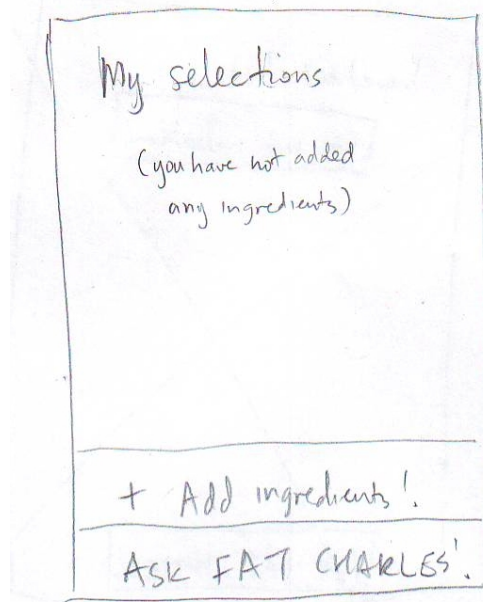 My selections
(you have not added
any ingredients)
+ Add ingredients!
ASK FAT CHARLES!